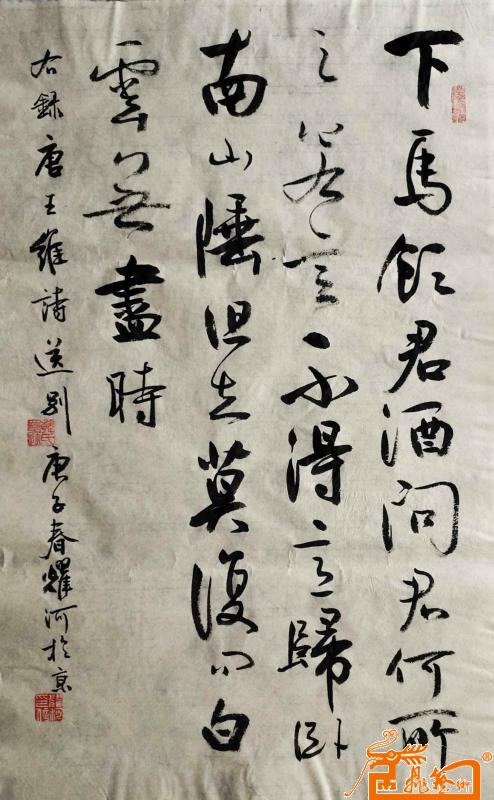 下馬飲君酒问君何所
之君言不得意歸卧
南山陲但去莫復问白
雲无盡時
右録唐王維詩送别 庚子春燿河於京